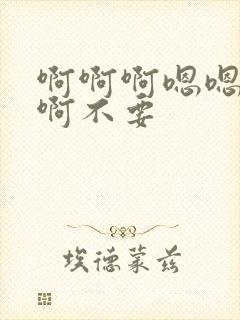 啊啊啊嗯嗯
啊不要
埃德蒙兹